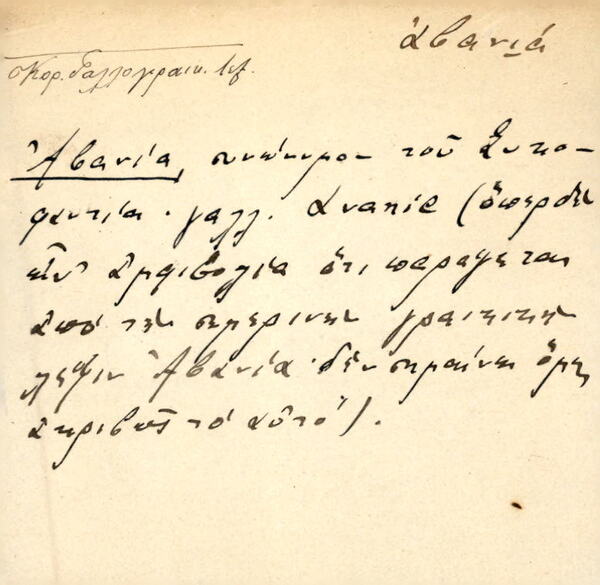 ἀβανιά
Κορ. Γαλλογραικ. λεξ.
Ἀβανία, συνώνυμο τοῦ Συκο-
φαντία · γαλλ. Avanie (ὅπερ δὲν
εἶν' ἀμφιβολία ὅτι παράγεται
ἀπὸ τὴν σημερινὴν γραικικὴν
λέξιν Ἀβανία · δὲν σημαίνει ὅμως
ἀκριβῶς τὸ αὐτό).